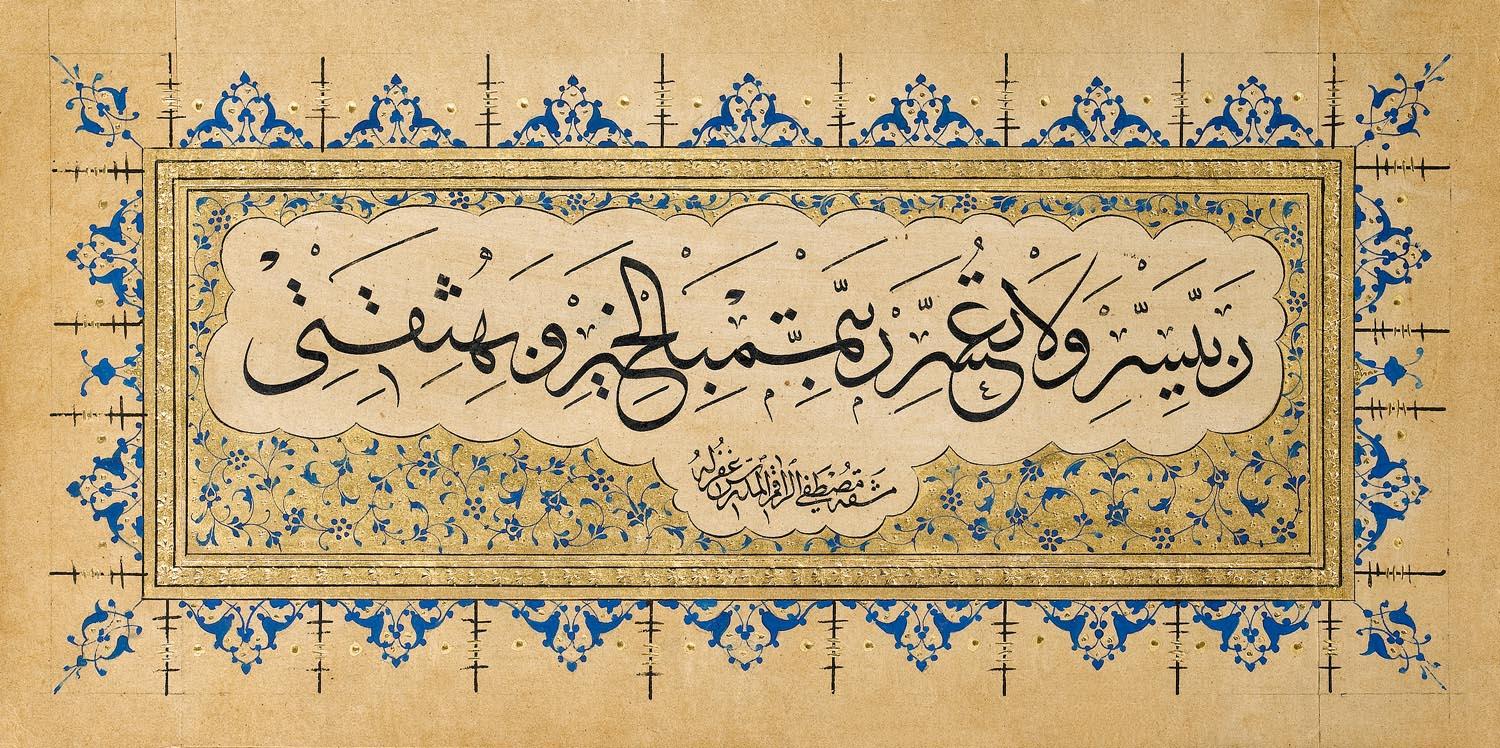 رب يسر ولا تعسر رب تمم بالخير وبه ثقتي
مشقه مصطفى الراقم المدرس غفر له